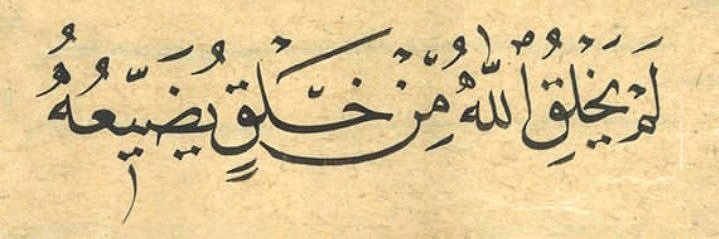 لَمْ يَخْلُقِ ٱللّٰهُ مِّنْ خَلْقٍ يُضَيِّعُهُ